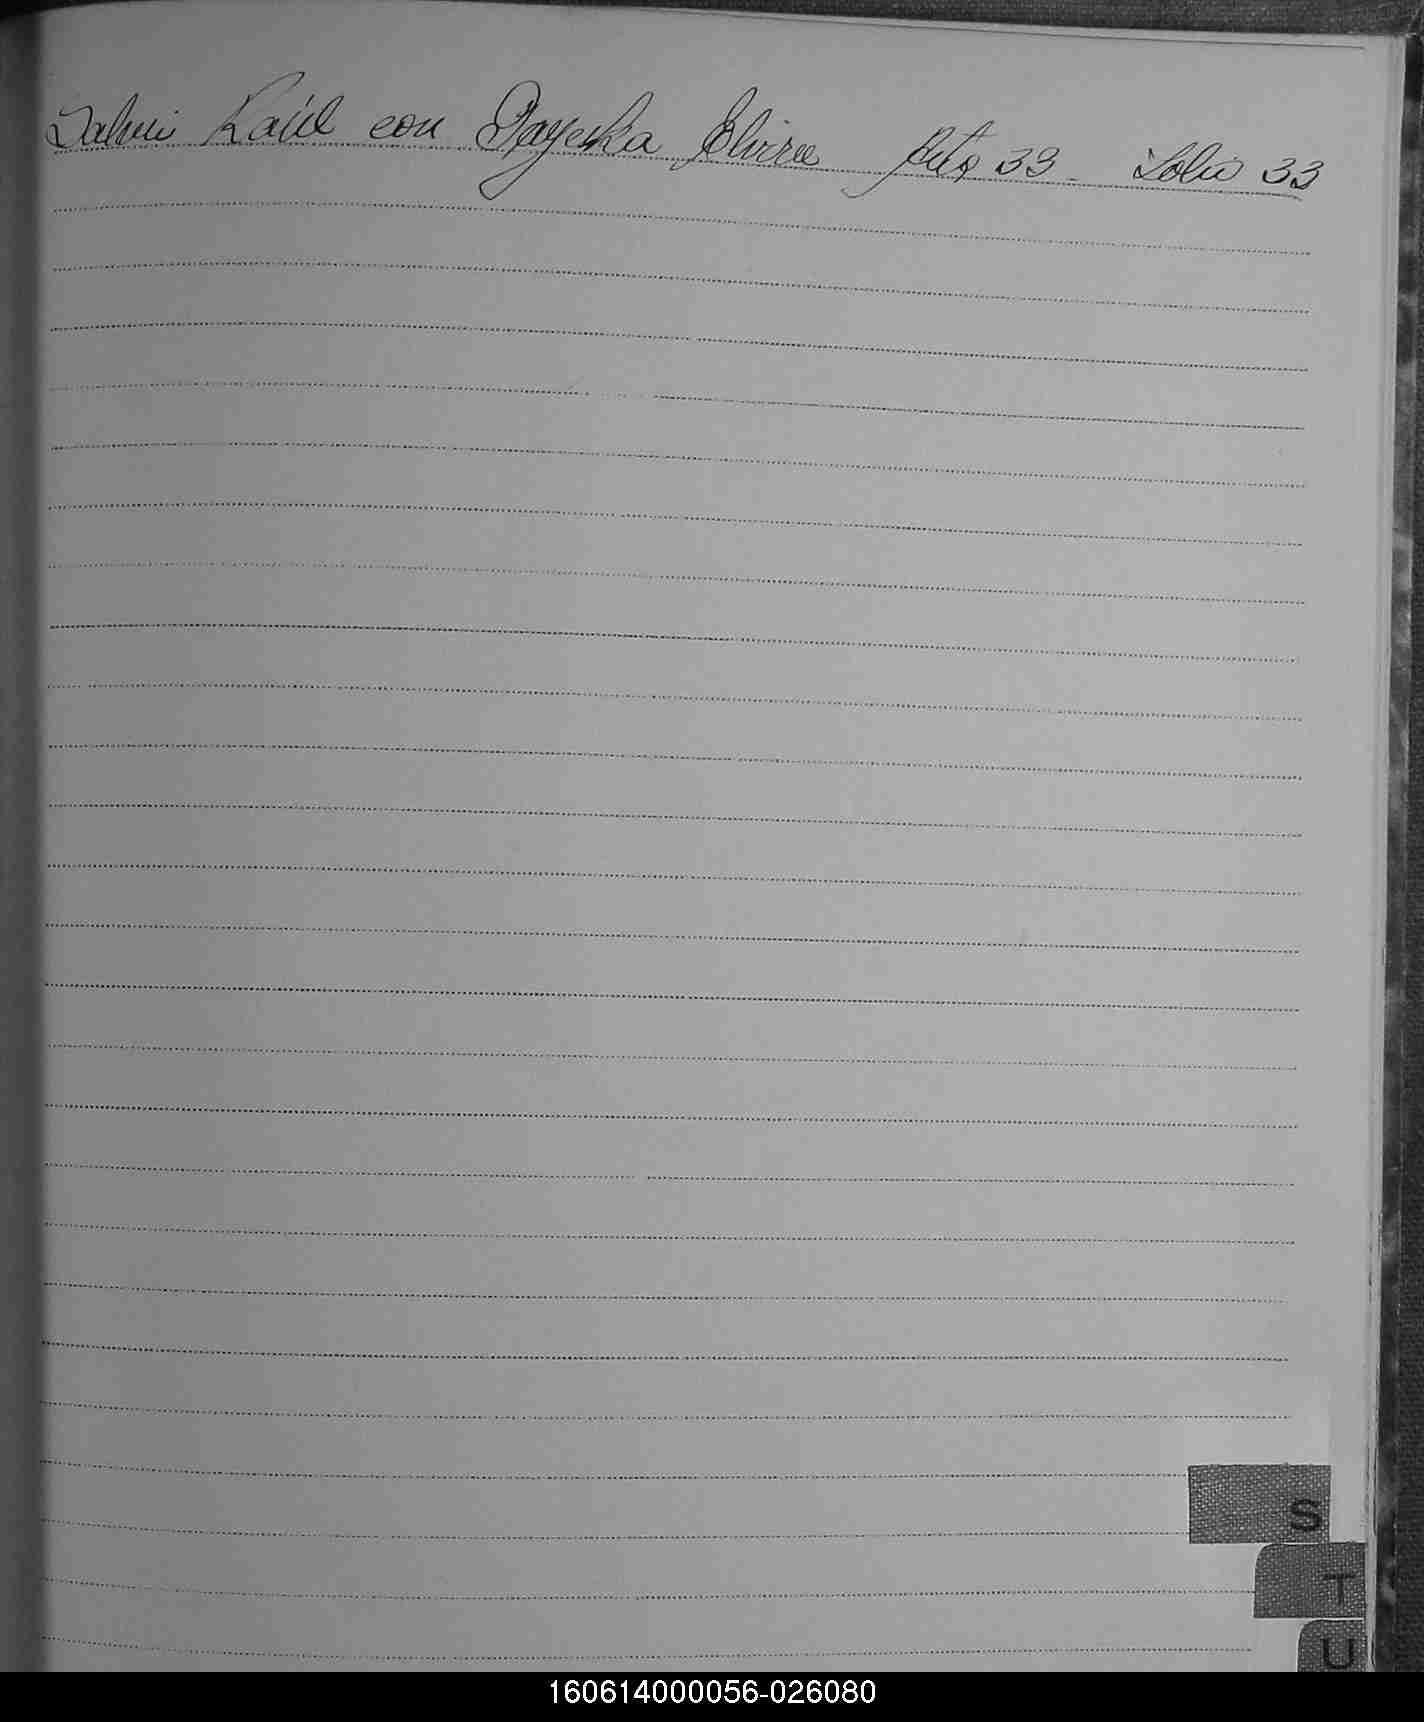 Salvi Raúl con Payeska Elvira Acta 33 - Folio 33
S
T
U
160614000056-026080